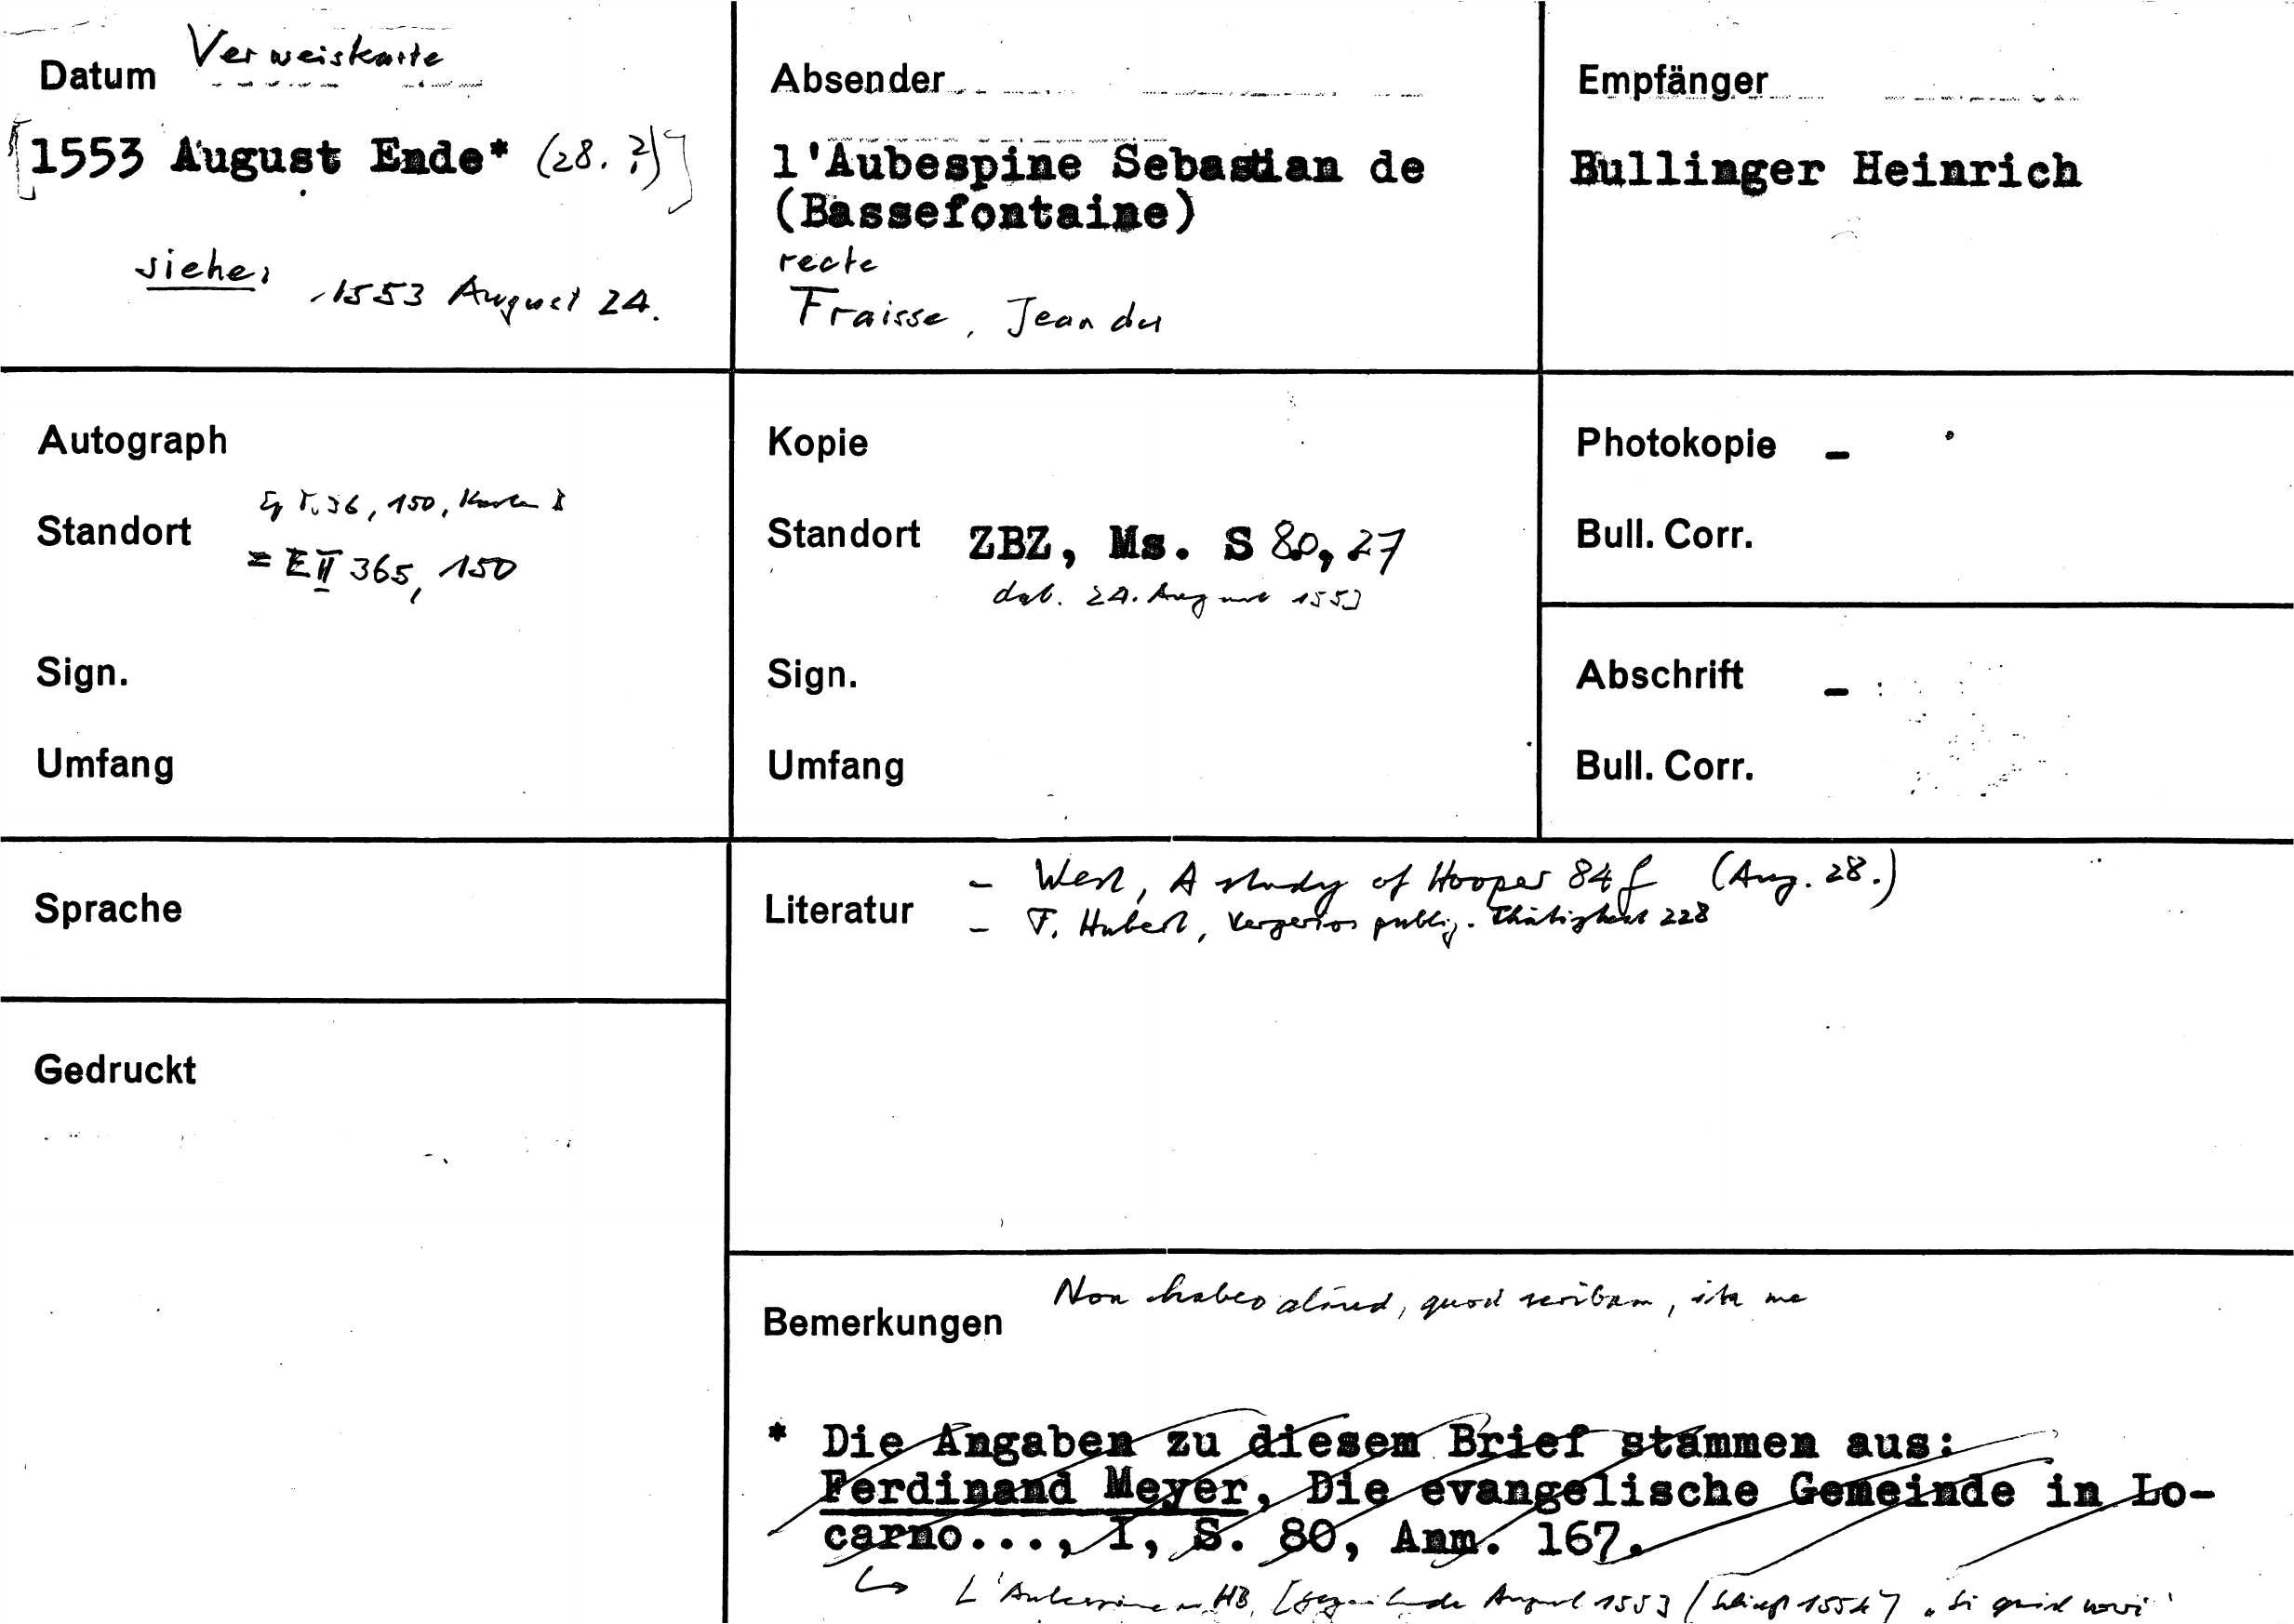 Verweiskarte
Datum
[1553 August Ende* (28. ?)]
siehe: 1553 August 24.
Absender
l'Aubespine Sebastian de
(Bassefontaine)
recte
Fraisse, Jean du
Empfänger
Bullinger Heinrich
Autograph
36, 150,
Standort
= E II 365, 150
Sign.
Umfang
Kopie
Standort ZBZ, Ms. S 80, 27
dat. 24. August 1553
Sign.
Umfang
Photokopie –
Bull. Corr.
Abschrift –
Bull. Corr.
Sprache
Gedruckt
– West, A study of Hooper 84 f (Aug. 28.)
Literatur
– F. Hubert, Vergerios publiz. Thätigkeit 228
Non habeo aliud, quod scribam, ita me
Bemerkungen
* Die Angaben zu diesem Brief stammen aus:
Ferdinand Meyer, Die evangelische Gemeinde in Lo-
carno..., I, S. 80, Anm. 167.
L'Aubespine an HB, [gegen Ende August 1553 "Si quid novi"